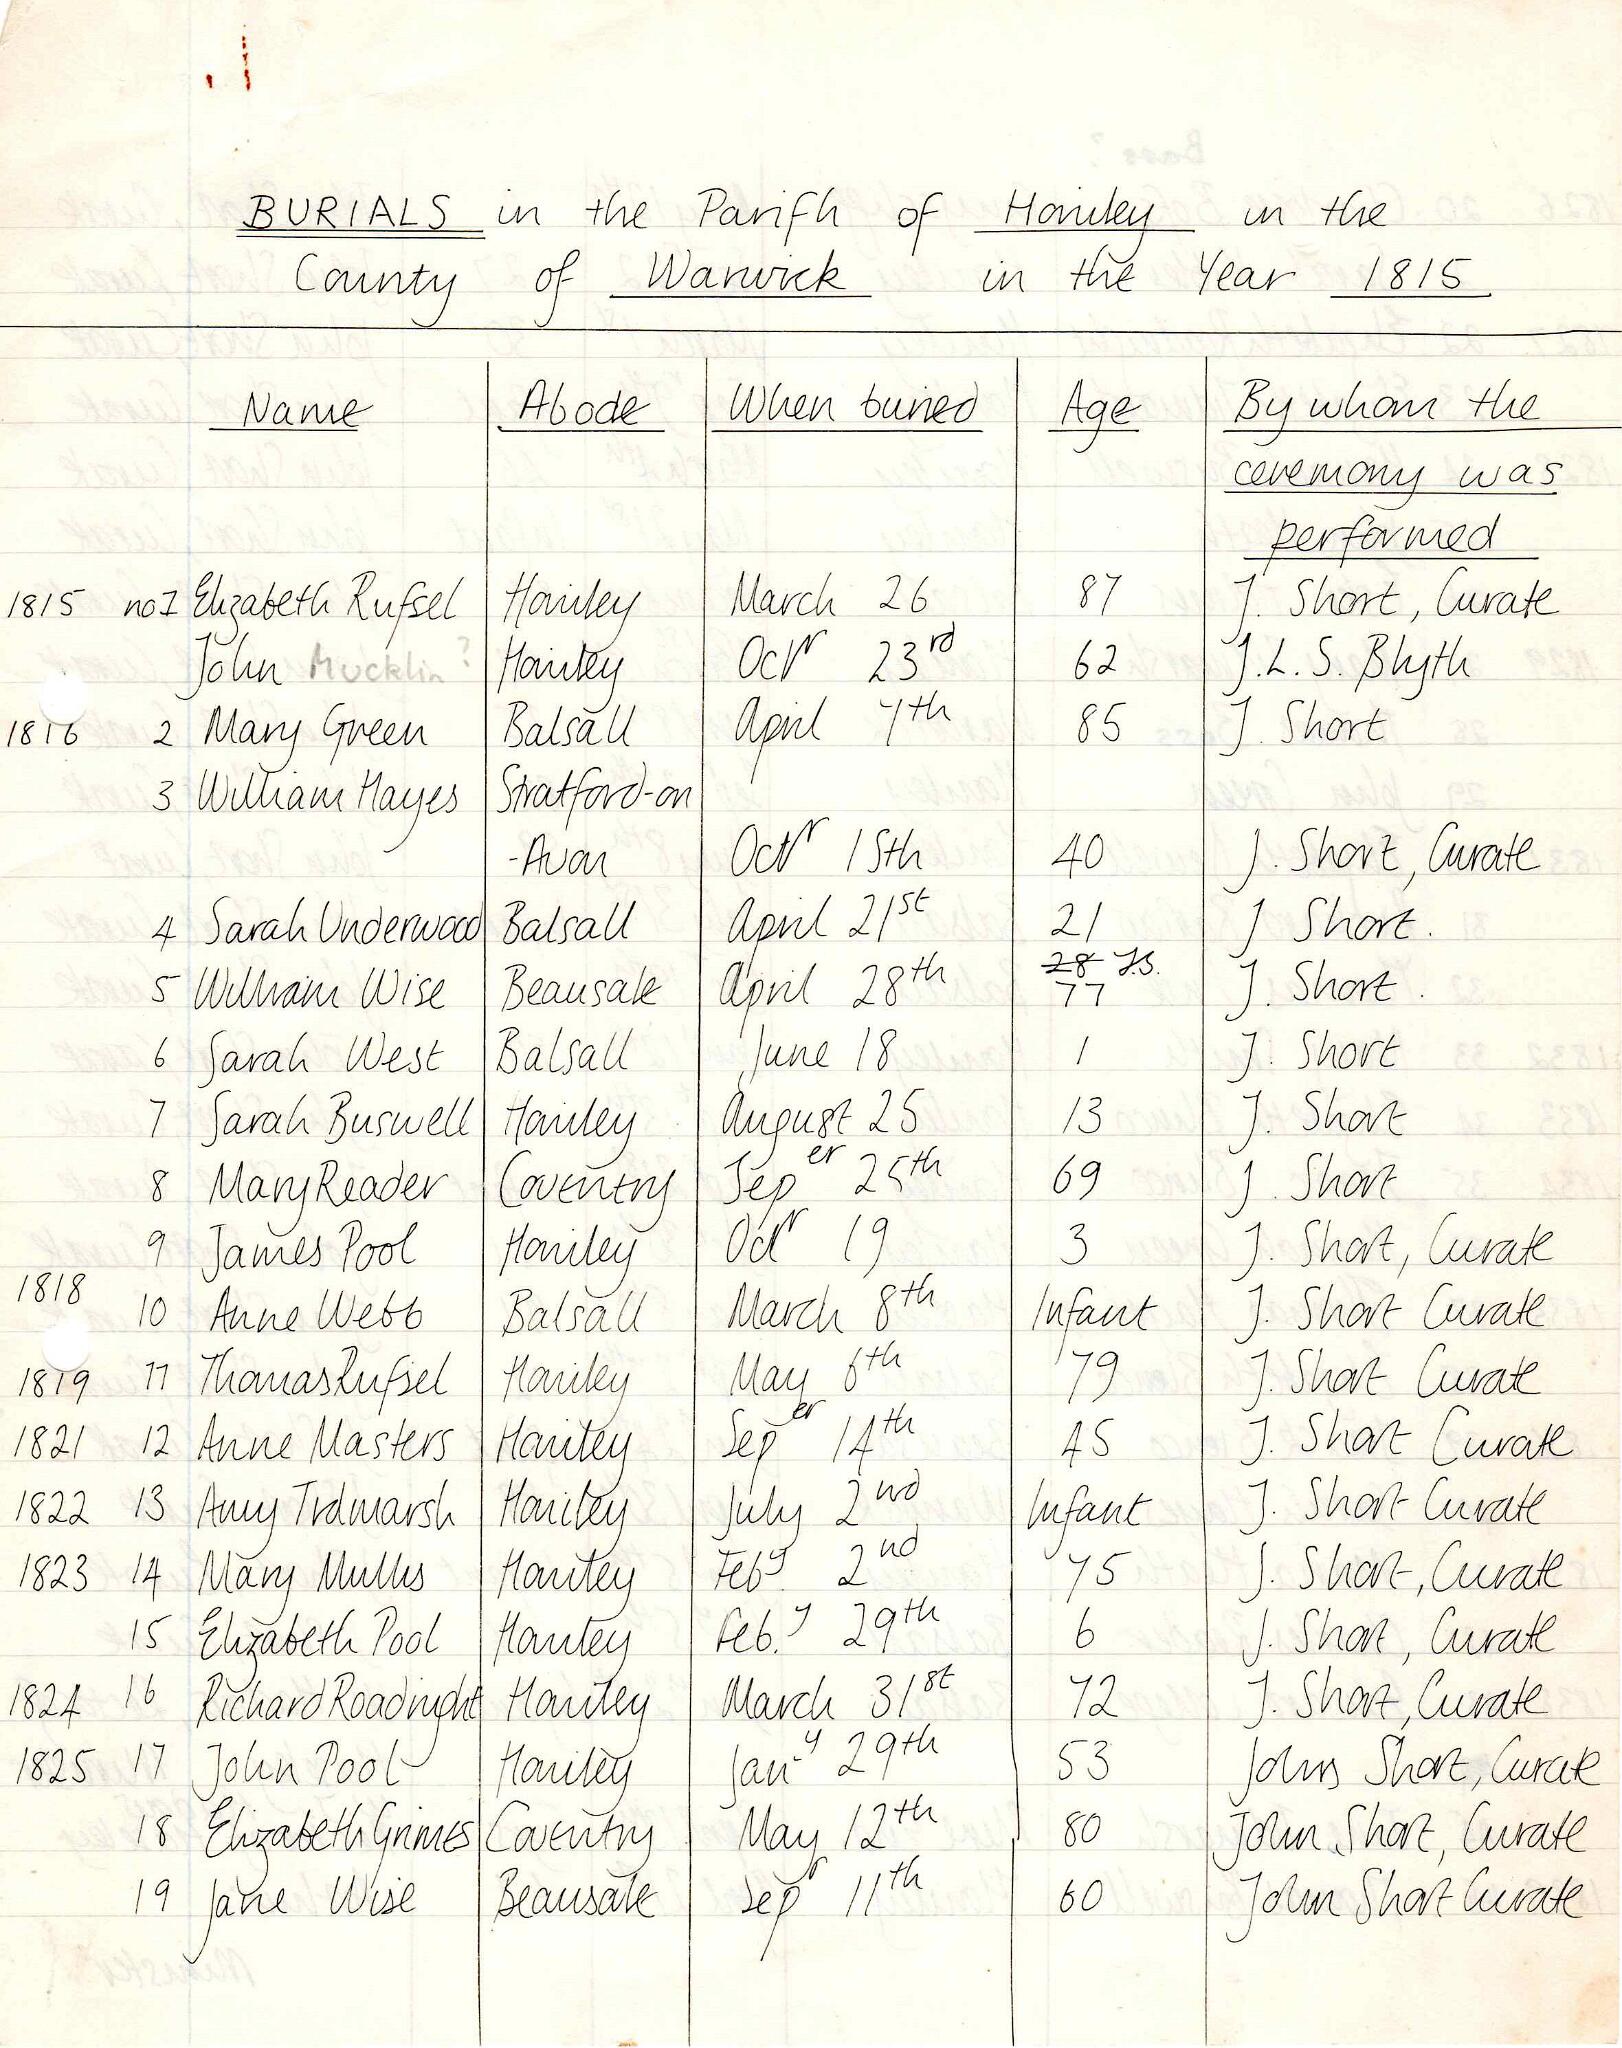 BURIALS in the Parifh of Honiley in the
County of Warwick in the Year 1815
Name Abode When buried Age By whom the
ceremony was
performed
1815 no1 Elizabeth Rufsel Honiley March 26 87 J. Short, Curate
John Mucklin? Honiley Octr 23rd 62 J.L.S. Blyth
1816 2 Mary Green Balsall April 7th 85 J. Short
3 William Hayes Stratford-on
-Avon Octr 15th 40 J. Short, Curate
4 Sarah Underwood Balsall April 21st 21 J Short.
28 J.S.
5 William Wise Beausale April 28th 77 J. Short.
6 Sarah West Balsall June 18 1 J. Short
7 Sarah Buswell Honiley August 25 13 J. Short
8 Mary Reader Coventry Seper 25th 69 J. Short
9 James Pool Honiley Octr 19 3 J. Short, Curate
1818
10 Anne Webb Balsall March 8th Infant J. Short Curate
1819 11 Thomas Rufsel Honiley May 6th 79 J. Short Curate
1821 12 Anne Masters Honiley Seper 14th 45 J. Short Curate
1822 13 Amy Tidmarsh Honiley July 2nd Infant J. Short Curate
1823 14 Mary Mullis Honiley Feby. 2nd 75 J. Short, Curate
15 Elizabeth Pool Honiley Feb.y 29th 6 J. Short, Curate
1824 16 Richard Roadnight Honiley March 31st 72 J. Short, Curate
1825 17 John Pool Honiley Jany 29th 53 John Short, Curate
18 Elizabeth Grimes Coventry May 12th 80 John Short, Curate
19 Jane Wise Beausale Sepr 11th 60 John Short Curate